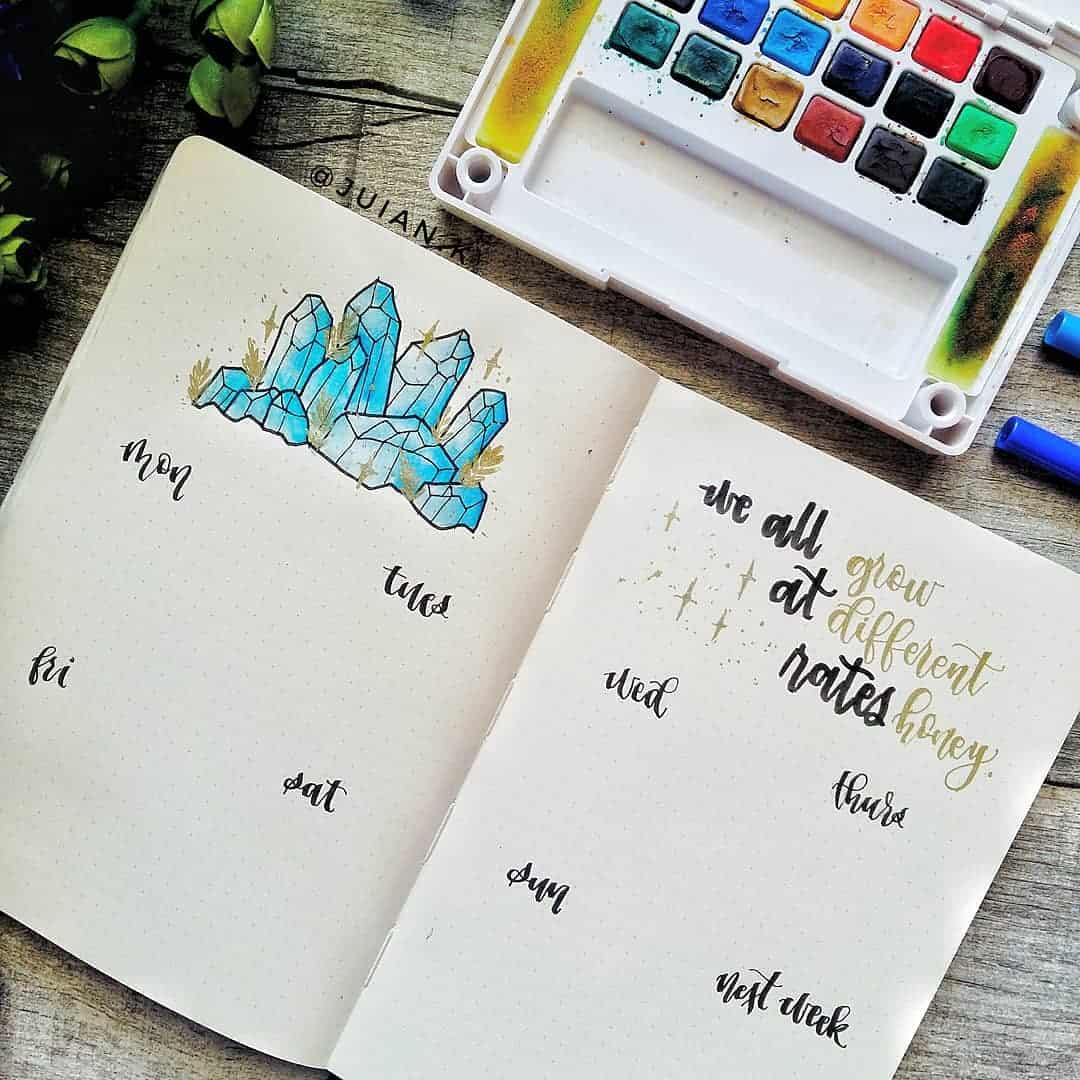 @JUIAN.K
mon
tues
fri
sat
we all grow
at different
rates honey.
wed
thurs
sun
next week